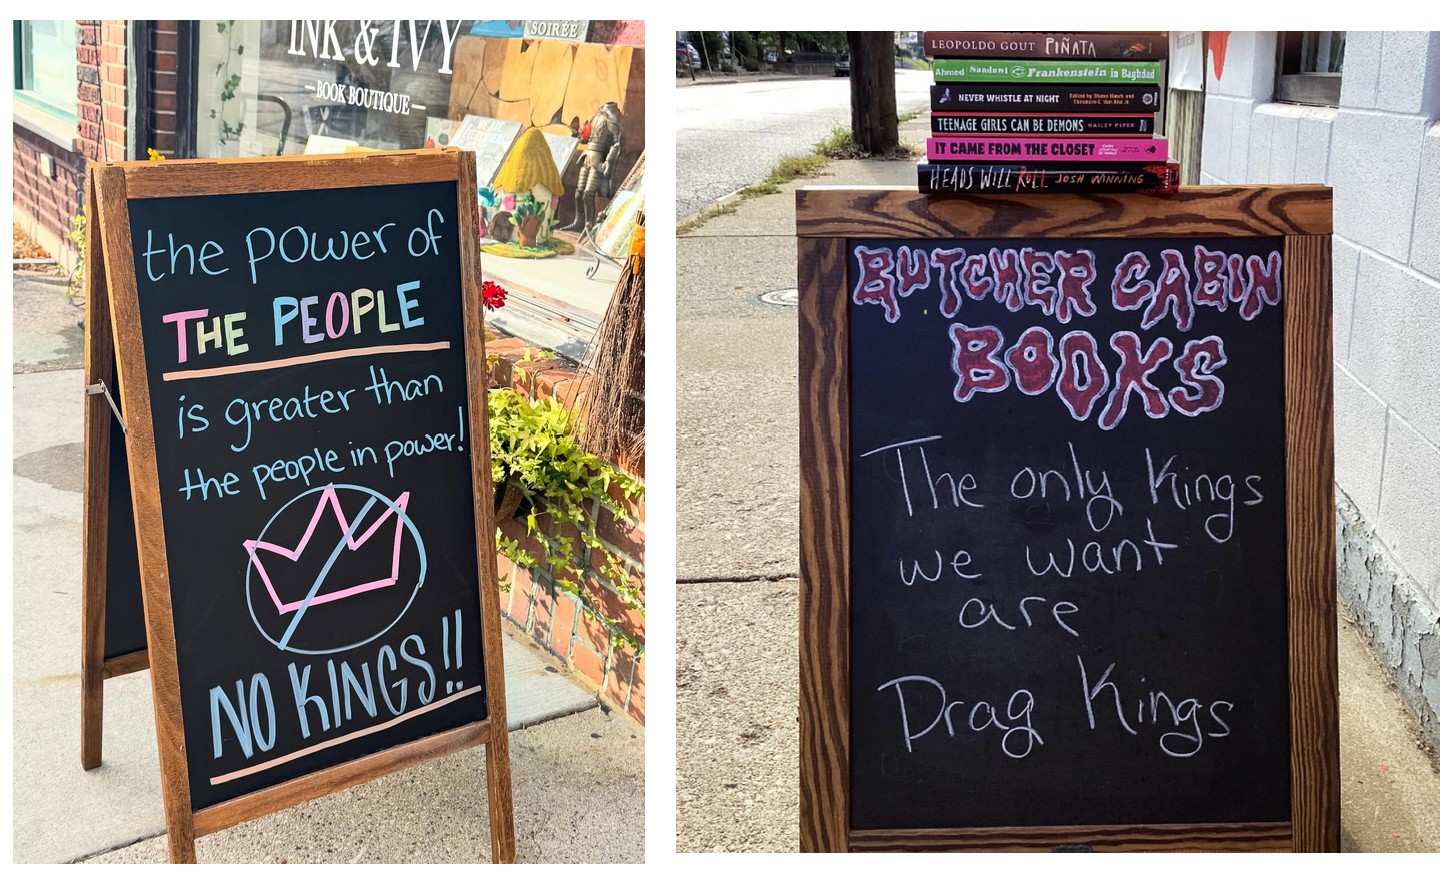 INK & IVY
BOOK BOUTIQUE
SOIRÉE
the power of
THE PEOPLE
is greater than
the people in power!
NO KINGS!!
LEOPOLDO GOUT PIÑATA
Ahmed Saadawi Frankenstein in Baghdad
NEVER WHISTLE AT NIGHT Edited by Shane Hawk and
Theodore C. Van Alst Jr.
TEENAGE GIRLS CAN BE DEMONS HAILEY PIPER
IT CAME FROM THE CLOSET
HEADS WILL ROLL JOSH WINNING
BUTCHER CABIN
BOOKS
The only Kings
we want
are
Drag Kings